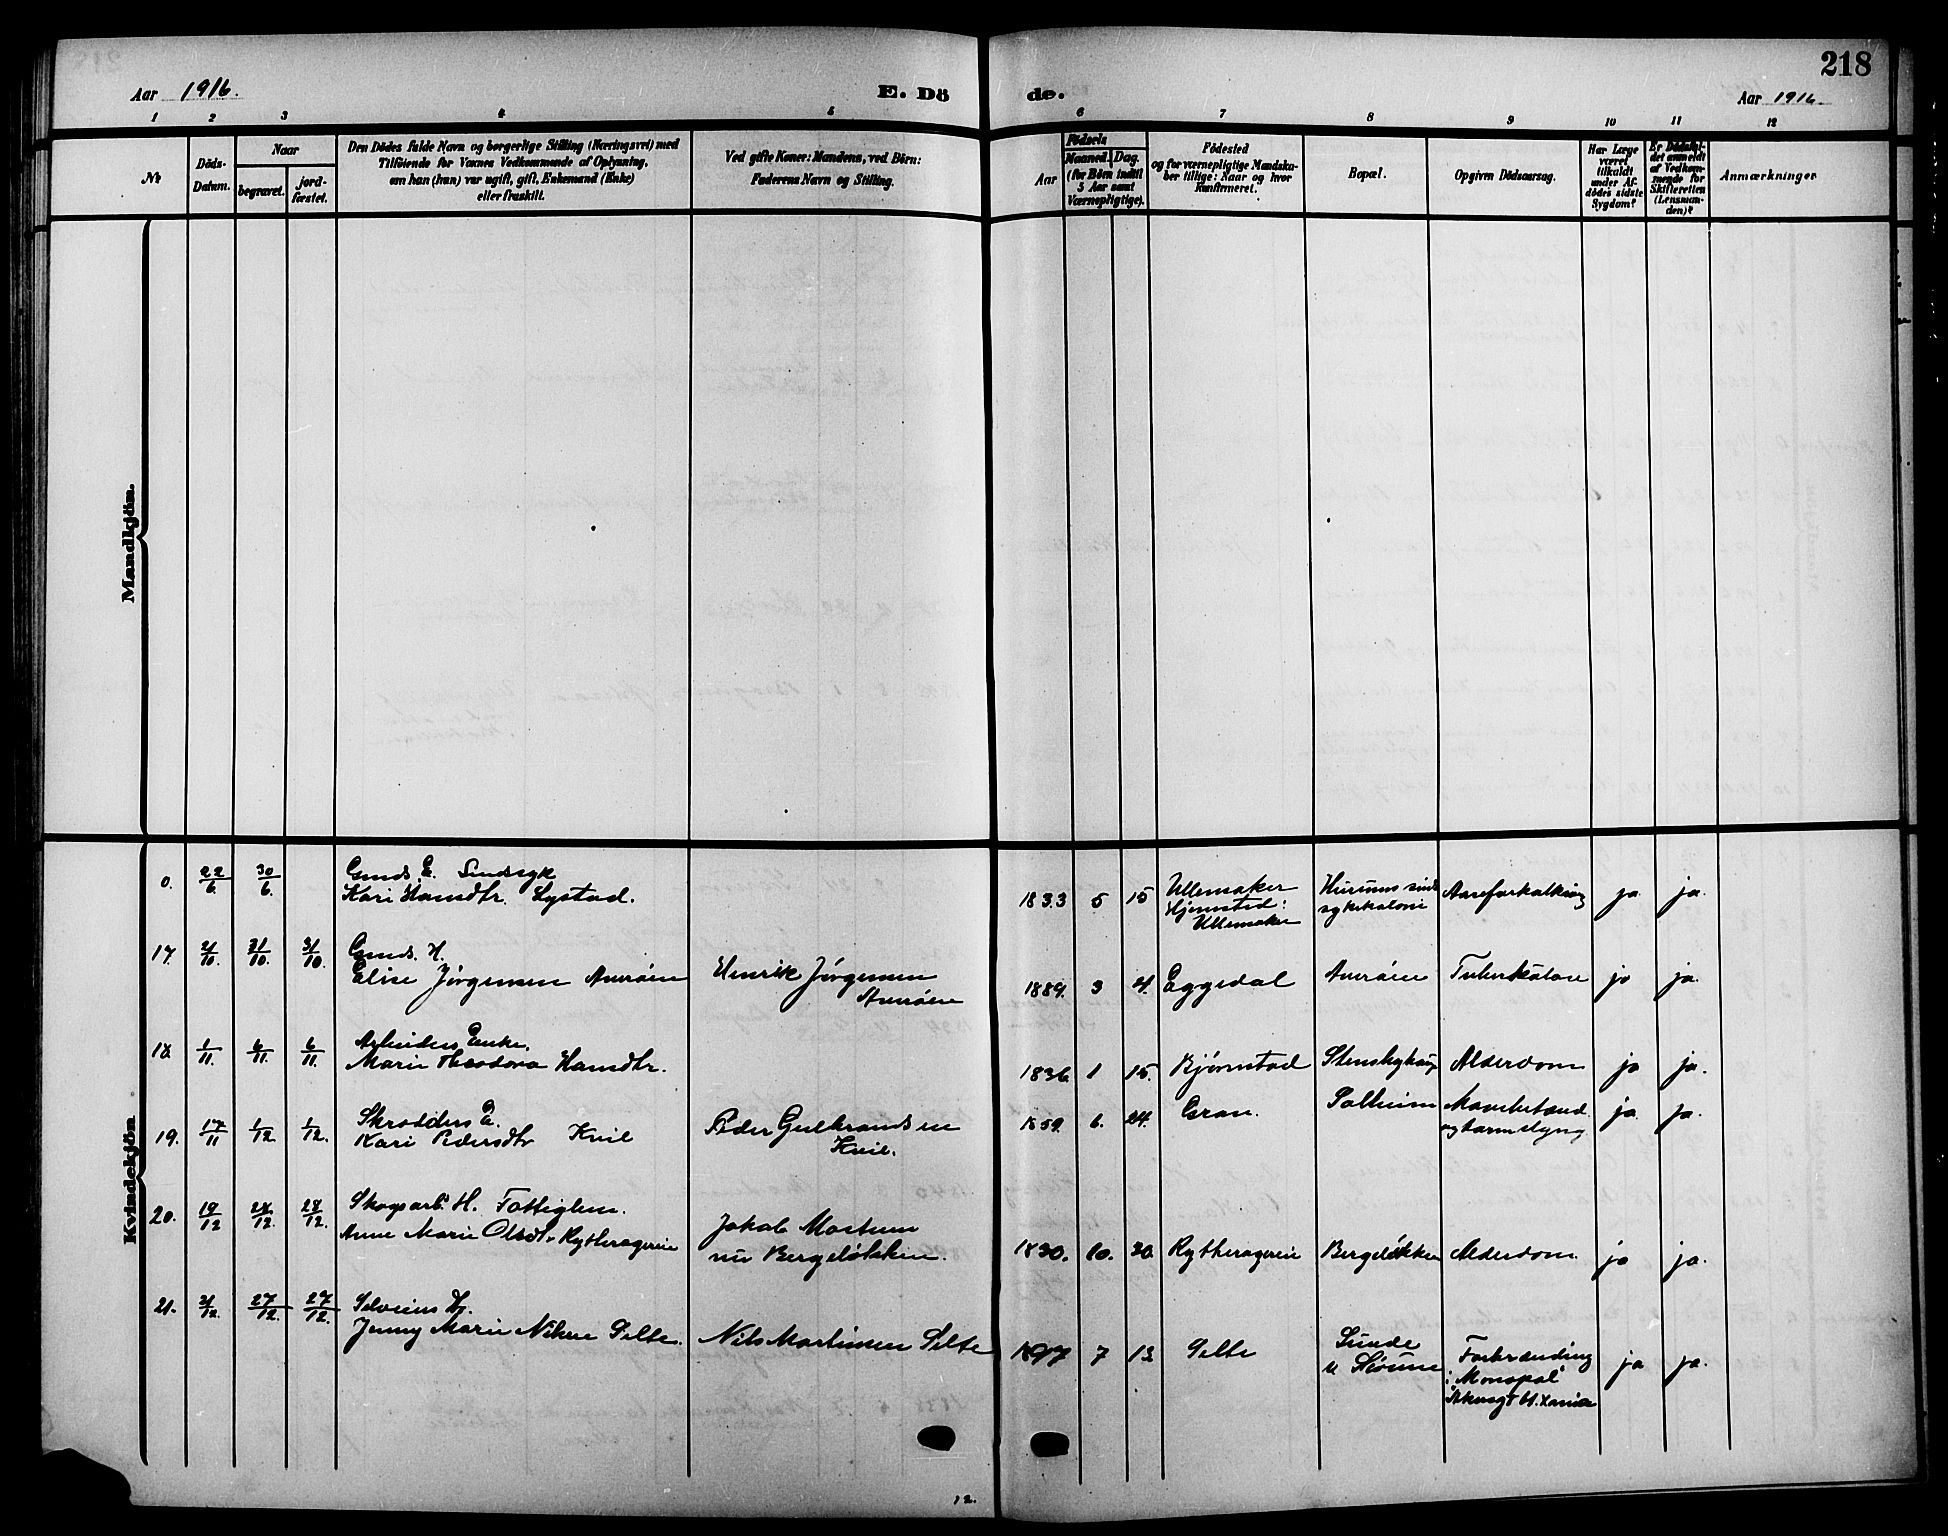 218
Aar 1916.
E. Dö
de.
Aar 1916
1 2 3 4 5
6 7 8 9 10 11 12
No
Döds-
Datum.
Naar
begravet.
jord-
fæstet.
Den Dödes fulde Navn og borgerlige Stilling (Næringsvei) med
Tilföiende for Voxnes Vedkommende af Oplysning,
om han (hun) var ugift, gift, Enkemand (Enke)
eller fraskilt.
Ved gifte Koner: Mandens, ved Börn:
Faderens Navn og Stilling.
Aar
Födsels
Maaned. Dag.
(for Börn indtil
5 Aar samt
Værnepligtige).
Födested
og for værnepligtige Mandska-
ber tillige: Naar og hvor
konfirmeret.
Bopæl.
Opgiven Dödsaarsag.
Har Læge
været
tilkaldt
under Af-
dödes sidste
Sygdom?
Er Dödsfal-
det anmeldt
af Vedkom-
mende for
Skifteretten
(Lensman-
den)?
Anmærkninger
Mandkjön.
Kvindekjön
0. 22/6 30/6 Gmds. E. Sindssyk
Kari Hansdtr. Lystad.
1833 5 15 Ullensaker
Hjemsted:
Ullensaker
Hurums sinds
sykekoloni
Aareforkalkning ja ja.
17. 21/10. 31/10. 31/10. Gmds. H.
Elise Jørgensen
Henrik Jørgensen
1889. 3 4. Eggedal Tuberkulose ja ja.
18. 1/11. 6/11. 6/11. Arbeiders Enke.
Marie Theodora Hansdtr.
1836 1 15. Bjørnstad Alderdom ja ja.
19. 17/11 1/12 1/12. Skrædders E.
Kari Pedersdtr Kvil
Peder Gulbrandsen
Kvil.
1859. 6. 24. Gran. Solheim ja. ja.
20. 19/12 28/12. 28/12. Skogsarb. H. Fattiglem.
Anne Marie Olsdtr Rytterageren
Jakob
nu Bergeløkken.
1830. 10. 30. Rytterageren Bergeløkken Alderdom. ja ja.
21. 21/12. 27/12. 27/12.
Jenny Marie Nilsen Selte.
Nils Martinsen Selte
1897 7 13 Selte
Sunde
Forbrænding
i "Monopol"
ja ja.
12.